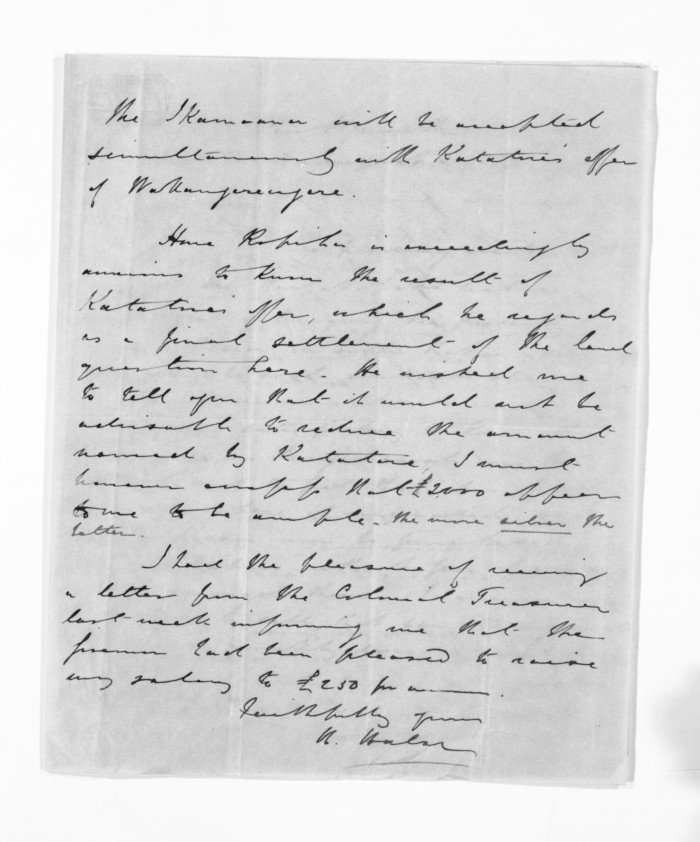 the Ikamoana will be accepted
simultaneously with Katatore's offer
of Wakangerengere.
Hone Ropiha is exceedingly
anxious to know the result of
Katatore's offer, which he regards
as a final settlement of the land
question here. He wished me
to tell you that it would not be
advisable to reduce the amount
named by Katatore, I must
however confess that £2000 appear
to me to be ample. the more silver the
better.
I had the pleasure of receiving
a letter from the Colonial Treasurer
last week informing me that the
had been pleased to raise
my salary to £250 per annum.
Faithfully yours